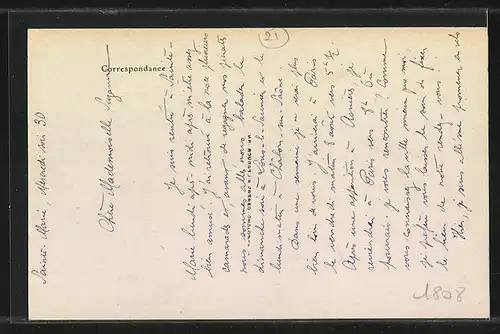 Sainte-Marie, Mercredi soir 30
Correspondance
Chère Mademoiselle Suzanne
Je suis rentré à Sainte-
Marie lundi après-midi après m'être assez
bien amusé. J'ai retrouvé à la noce plusieurs
camarades et avant de regagner nos
nous sommes allés nous balader le
dimanche soir à Lons-le-Saunier et le
lundi matin à Châlon-sur-Saône.
Dans une semaine je serai plus
bien loin de vous. J'arriverai à Paris
le vendredi matin 8 août vers 5h ½.
Après une apparition à Asnières je
reviendrai à Paris vers 8h. Où
pourrais-je vous rencontrer ? Comme
vous connaissez la ville mieux que moi
je préfère vous laisser le soin de fixer
le lieu de notre rendez-vous.
Hier, je suis allé me promener en vélo
1808